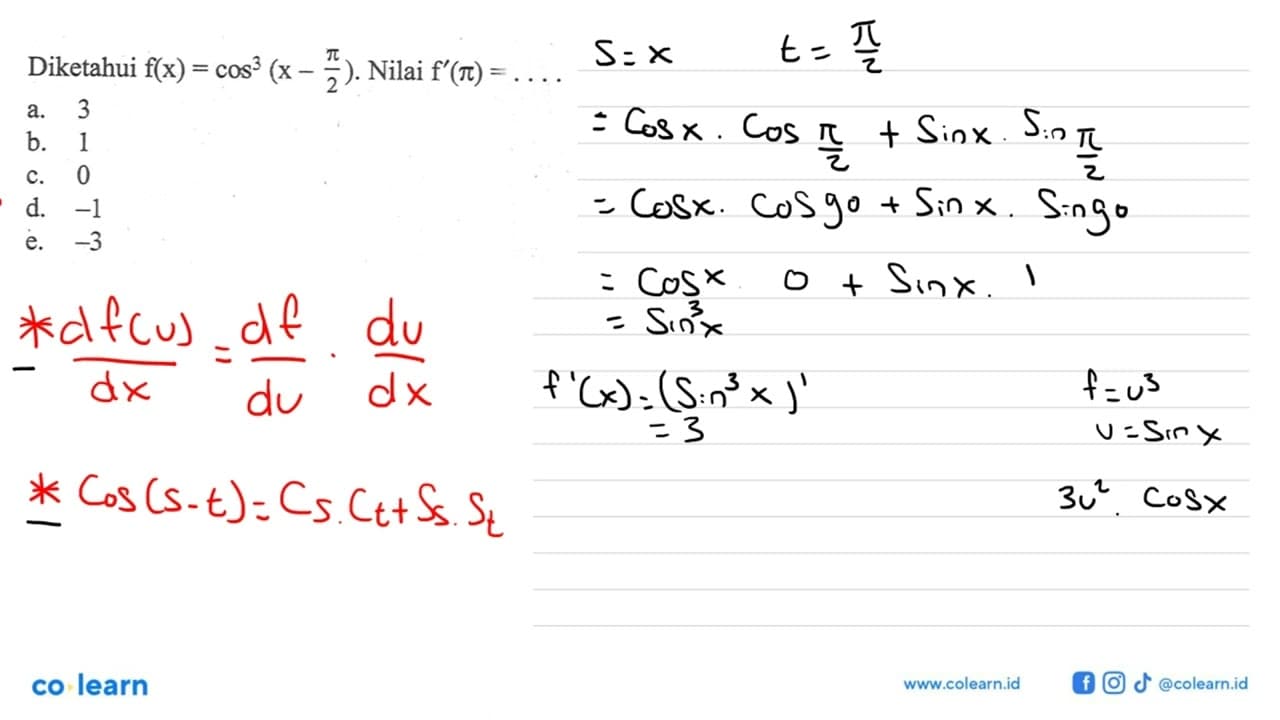 Diketahui f(x) = cos³ (x – π/2). Nilai f'(π) = . . . .
a. 3
b. 1
c. 0
d. –1
e. –3
* df(u)/dx = df/du . du/dx
* Cos(s-t) = Cs.Ct + Ss.St
S = x t = π/2
= Cos x . Cos π/2 + Sin x . Sin π/2
= Cosx . Cos 90 + Sin x . Sin 90
= Cos x 0 + Sin x . 1
= Sin³x
f'(x) = (Sin³ x)'
= 3
f = u³
u = Sin x
3u² . Cos x
co learn
www.colearn.id
@colearn.id